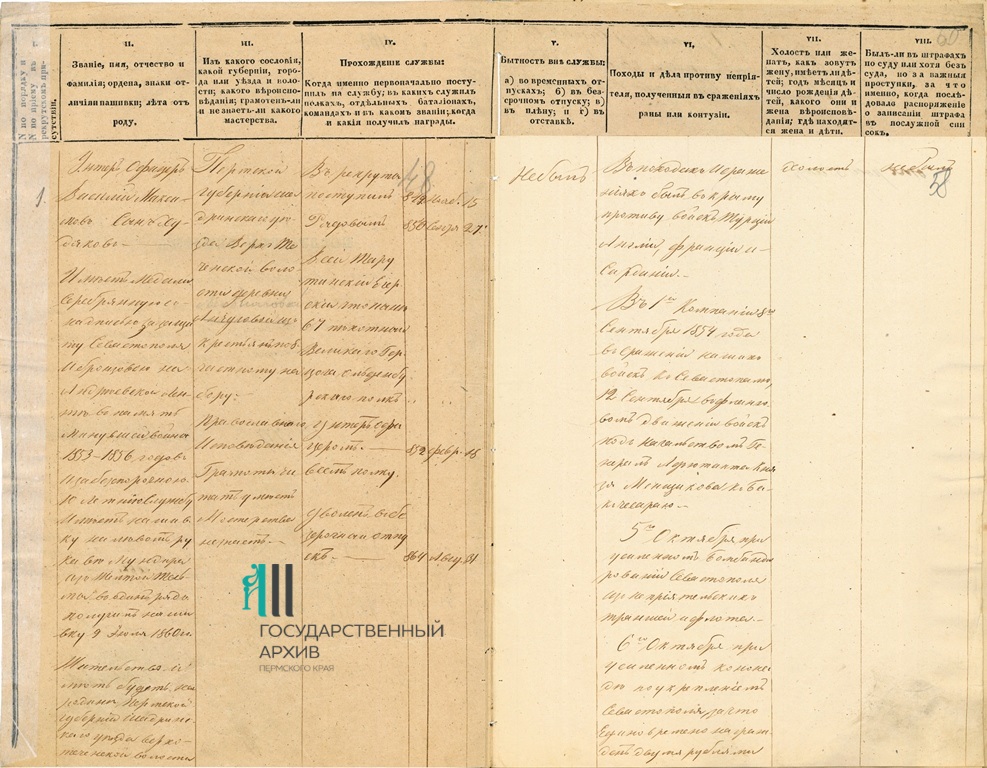 I.
N по порядку и
N по приску въ
рекрутскомъ при-
сутствіи.
II.
Званіе, имя, отчество и
фамилія; ордена, знаки от-
личія и нашивки; лѣта отъ
роду.
III.
Изъ какого сословія,
какой губерніи, горо-
да или уѣзда и воло-
сти; какого вѣроиспо-
вѣданія; грамотенъ-ли
и не знаетъ-ли какого
мастерства.
IV.
Прохожденіе службы:
Когда именно первоначально посту-
пилъ на службу; въ какихъ служилъ
полкахъ, отдѣльныхъ баталіонахъ,
командахъ и въ какомъ званіи; когда
и какія получилъ награды.
V.
Бытность внѣ службы:
а) во временныхъ от-
пускахъ; б) въ без-
срочномъ отпуску; в)
въ плѣну; и г) въ
отставкѣ.
VI.
Походы и дѣла противу непрія-
теля, полученныя въ сраженіяхъ
раны или контузіи.
VII.
Холостъ или же-
натъ, какъ зовутъ
жену, имѣетъ ли дѣ-
тей; годъ мѣсяцъ и
число рожденія дѣ-
тей, какого они и
жена вѣроисповѣ-
данія; гдѣ находят-
ся жена и дѣти.
VIII.
Былъ-ли въ штрафахъ
по суду или хотя безъ
суда, но за важные
проступки, за что
именно, когда послѣ-
довало распоряженіе
о записаніи штрафа
въ послужной спи-
сокъ.
1.
Унтеръ Офицеръ
Василій Макси-
мовъ Сынъ Ху-
дяковъ
Имѣетъ Медали
Серебряную съ
надписью за защи-
ту Севастополя
и бронзовую на
Андреевской лен-
тѣ въ память
минувшей войны
1853-1856 годовъ
и за безпорочную
службу
имѣетъ нашив-
ку на лѣвомъ ру-
кавѣ
получилъ нашив-
ку 9 Іюля 1860 г.
Жительство и-
мѣть будетъ на
родинѣ Пермской
губерніи Шадринс-
каго уѣзда Верхо-
теченской волости
Пермской
губерніи Ша-
дринскаго уѣ-
зда Верхъ Те-
ченской воло-
сти деревни
изъ
крестьянъ по
на-
бору.
Православнаго
Исповѣданія
Грамотѣ чи-
тать умѣетъ
Мастерства
не знаетъ
Въ рекруты
поступилъ 8 Нояб. 15
Рядовымъ 850 27
Въ Тиру-
тинской Егер-
скій что нынѣ
67 пѣхотный
Великаго Гер-
цога Ольденбу-
ргскаго полкъ
Унтеръ Офи-
церомъ 852 Февр. 18
въ семъ полку.
Уволенъ въ бе-
зсрочный отпу-
скъ 864 Авгу. 31
48
Не былъ
Въ походахъ
былъ въ Крыму
противу войскъ Турціи
Англіи, Франціи и
Сардиніи.
Въ 1ю Компанію 8го
Сентября 1854 года
въ сраженіи нашихъ
войскъ въ Севастополѣ,
12 Сентября во фланго-
вомъ движеніи войскъ
подъ начальствомъ Ге-
нералъ Адъютанта Кня-
зя Меншикова къ Ба-
кчисараю
5го Октября при
усиленномъ бомбанди-
рованіи Севастополя
непріятельскихъ
траншей и флота
6го Октября при
усиленномъ канона-
дѣ по укрепленіямъ
Севастополя за что
Единовременно награж-
денъ двумя рублями
Холостъ
не былъ
58
ГОСУДАРСТВЕННЫЙ
АРХИВ
ПЕРМСКОГО КРАЯ